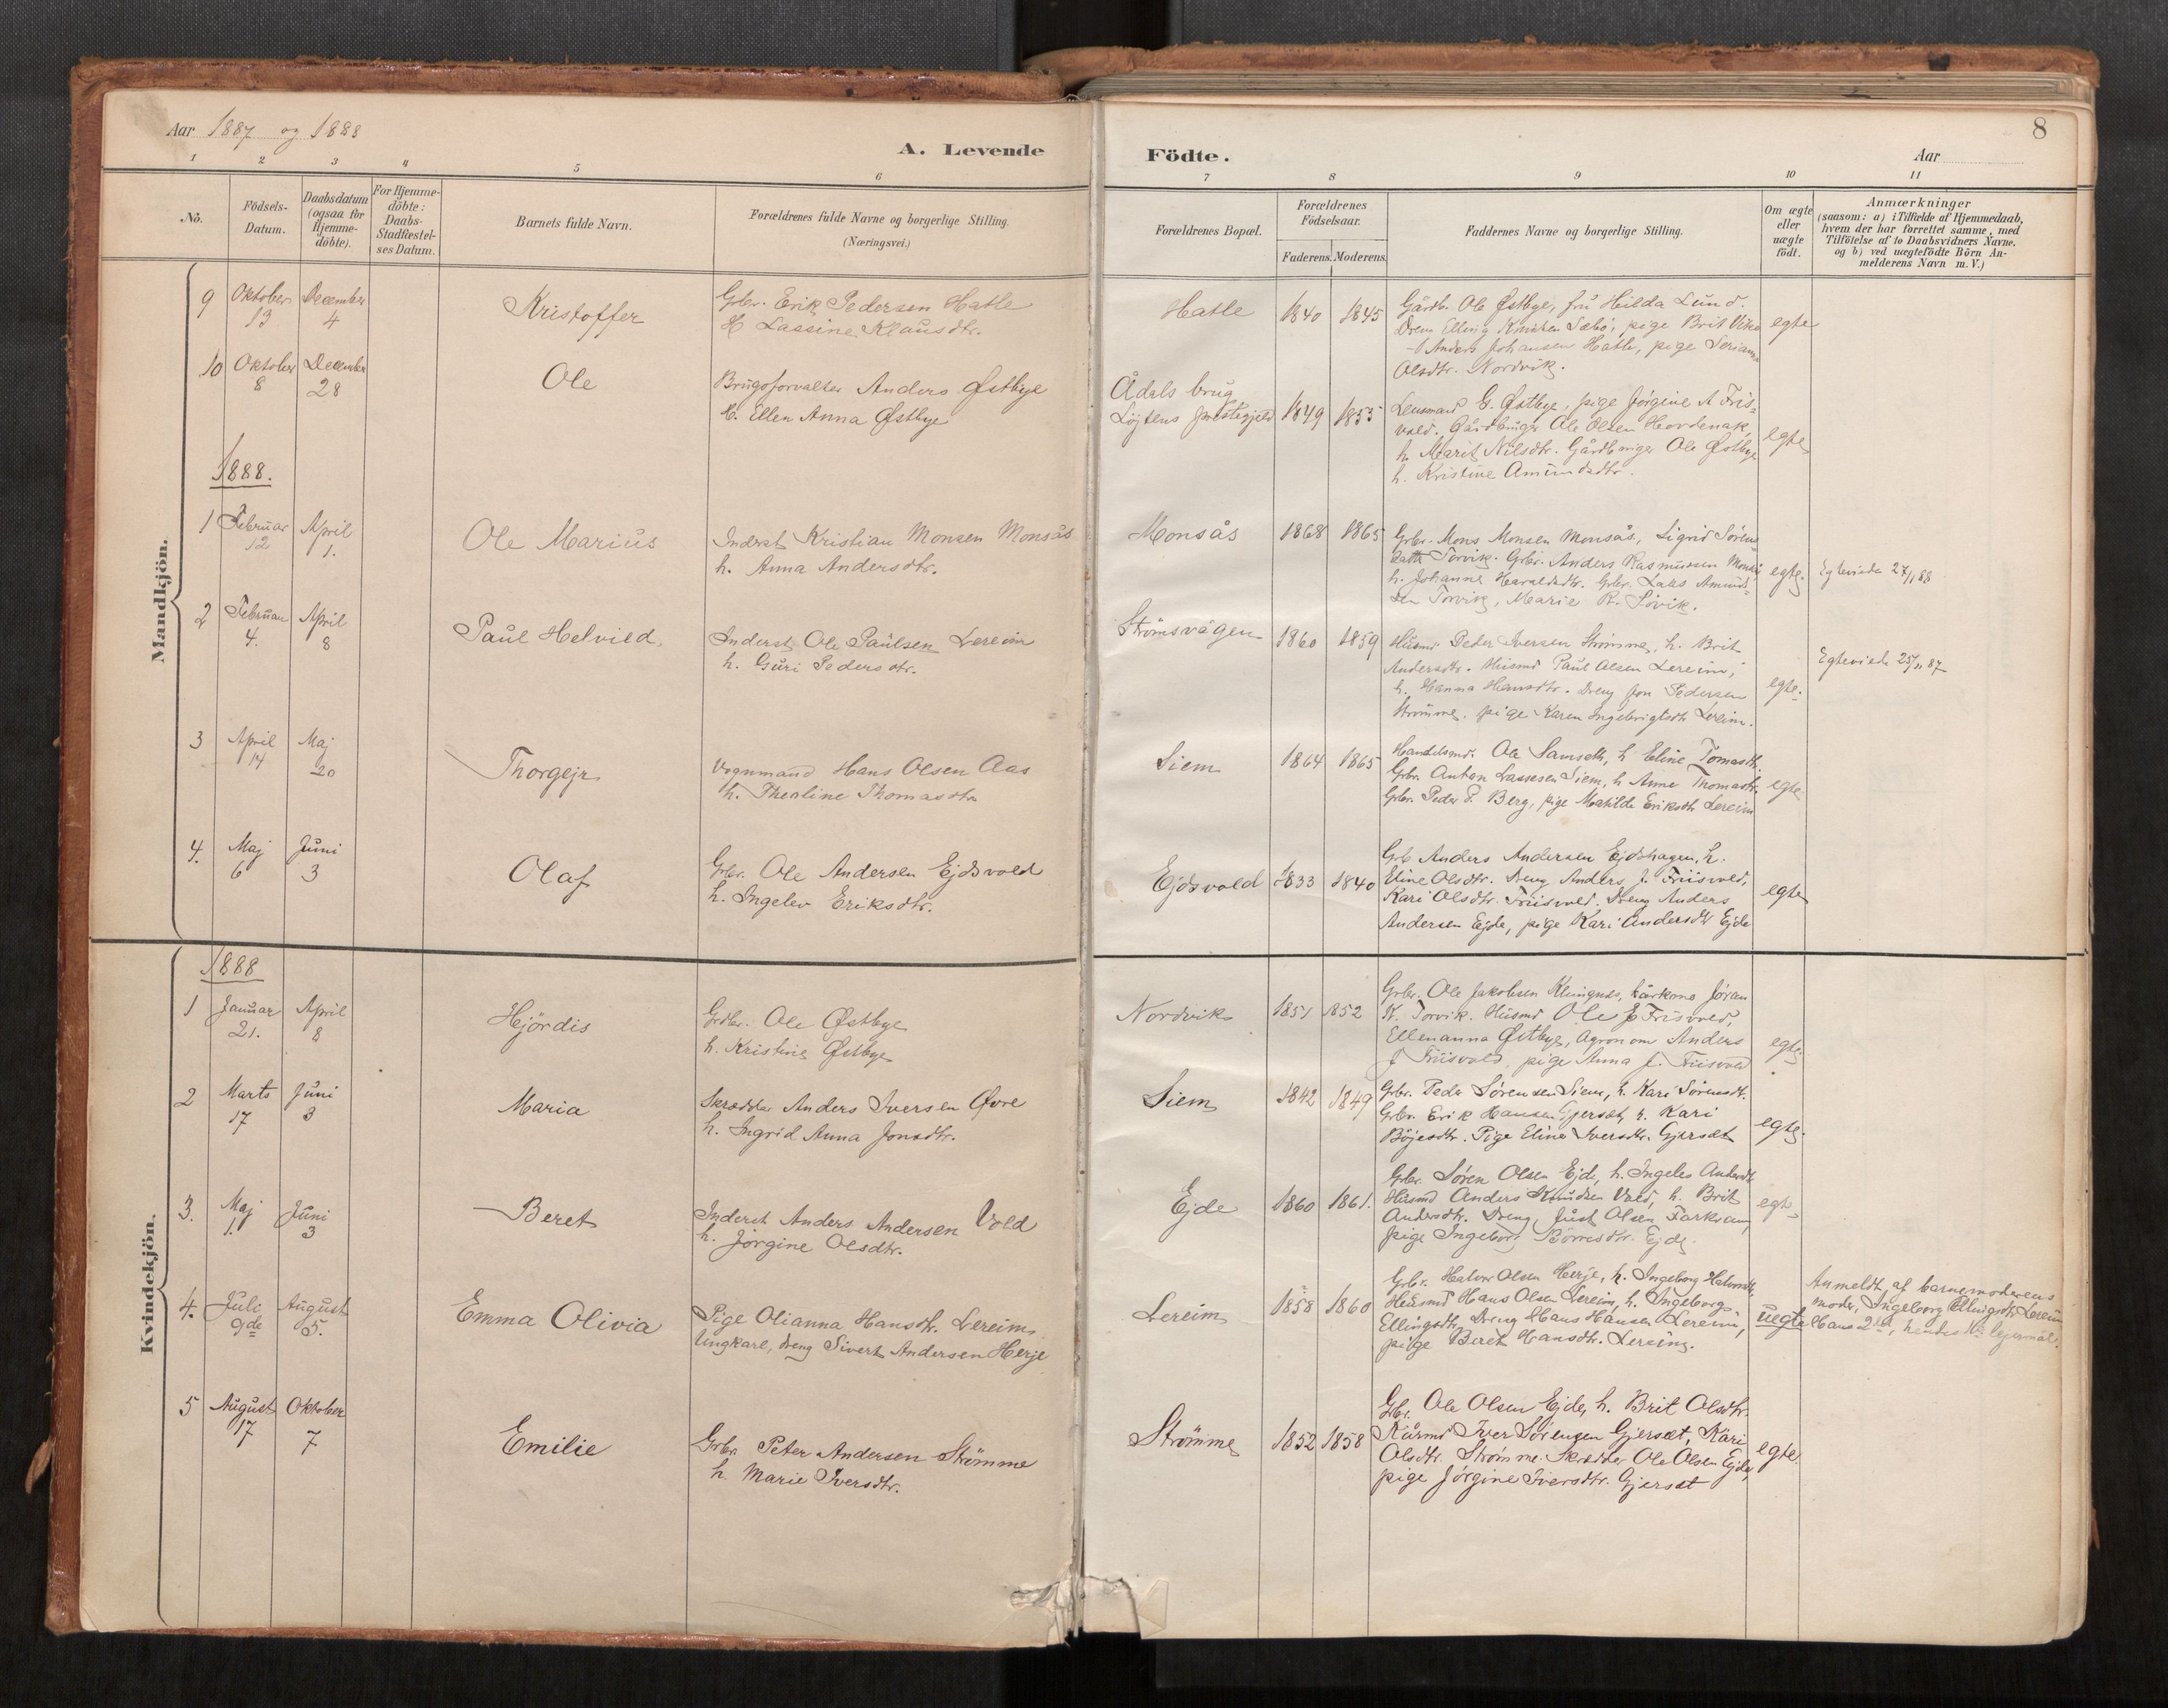 Aar 1887 og 1888
A. Levende Födte.
Aar
8
1 2 3 4 5 6 7 8 9 10 11
No.
Födsels-Datum.
Daabsdatum (ogsaa for Hjemme-döbte).
For Hjemme-döbte: Daabs-Stadfæstel-ses Datum.
Barnets fulde Navn.
Forældrenes fulde Navne og borgerlige Stilling.
(Næringsvei.)
Forældrenes Bopæl.
Forældrenes Födselsaar.
Faderens. Moderens.
Faddernes Navne og borgerlige Stilling.
Om ægte eller uægte födt.
Anmærkninger
(saasom: a) i Tilfælde af Hjemmedaab,
hvem der har forrettet samme, med
Tilföielse af to Daabsvidners Navne.
og b) ved uægtefödte Börn An-
melderens Navn m. V.)
Mandkjön.
9 Oktober 13 December 4 Kristoffer
Grbr. Erik Pedersen Hatle
H Lassine Klausdtr.
Hatle 1840 1845
Gårdb. Ole Østbye, fru Hilda Lund.
Dreng Elling Knutsen Sæbö, pige Brit Vike
Anders Johansen Hatle, pige Serianna
Olsdtr. Nordvik.
egte
10 Oktober 8 December 28 Ole
Brugsforvalter Anders Østbye
h. Ellen Anna Østbye
Ådals brug
Löjtens prestegjeld 1849 1853
Lensmand E. Østbye, pige Jørgine A Fris-
vold. Gårdbruger Ole Olsen Hovdenak,
h. Marit Nilsdtr. Gårdbruger Ole Østbye
h. Kristine Amundsdtr.
egte
1888.
1 Februar 12 April 1. Ole Marius
Inderst Kristian Monsen Monsås
h. Anna Andersdtr.
Monsås 1868 1865
Grbr. Mons Monsen Monsås, Sigrid Søren-
datter Torvik. Grbr. Anders Rasmussen Monsås
h. Johanne Haraldsdtr. Grbr. Lars Amund-
sen Torvik, Marie R. Sövik.
egte.
Egteviede 27/1 88
2 Februar 4. April 8 Paul Helvied.
Inderst Ole Paulsen Lereim
h. Guri Pedersdtr.
Strömsvågen 1860 1859
Husmd Peder Iversen Strömme, h. Brit
Andersdtr. Husmd Paul Olsen Lereim,
h. Hanna Hansdtr. Dreng Jon Pedersen
Strömme. pige Karen Ingebrigtsdtr Lereim.
egte.
Egteviede 25/11 87
3 April 14 Maj 20 Thorgejr
Vognmand Hans Olsen Aas
h. Thealine Thomasdtr
Siem 1864 1865
Handelsmd. Ole Samseth, h Eline Tomasdtr.
Grbr. Anton Lassesen Siem, h Anne Thomasdtr.
Grbr. Peder P. Berg, pige Matilde Eriksdtr Lereim
egte
4. Maj 6 Juni 3 Olaf
Grbr. Ole Andersen Ejdsvold
h. Ingelev Eriksdtr.
Ejdsvold 1833 1840
Grb Anders Andersen Ejdshagen, h.
Eline Olsdtr. Dreng Anders J. Friisvold,
Kari Olsdtr. Friisvold. Dreng Anders
Andersen Ejde, pige Kari Andersdtr Ejde
egte
Kvindekjön.
1888
1 Januar 21. April 8 Hjördis
Grbr. Ole Østbye
h. Kristine Østbye
Nordvik 1851 1852
Grbr. Ole Jakobsen Klungnes, kårkone Jöran
K. Torvik. Husmd Ole J Frisvold,
Ellenanna Østbye, Agronom Anders
J Friisvold, pige Anna J. Friisvold
egte.
2 Marts 17 Juni 3 Maria
Skrædder Anders Iversen Øvre
h. Ingrid Anna Jonsdtr.
Siem 1842 1849
Grbr. Peder Sørensen Siem, h. Kari Sørensdtr.
Grbr. Erik Hansen Gjersæt, h. Kari
Böjesdtr. Pige Eline Iversdtr. Gjersæt
egte.
3. Maj 1. Juni 3 Beret
Inderst Anders Andersen Vold
h. Jörgine Olsdtr.
Ejde 1860 1861.
Grbr. Sören Olsen Ejde, h. Ingelev Andersdtr
Husmd Anders Knudsen Vold, h. Brit
Andersdtr. Dreng Just Olsen Farkvam,
pige Ingeborg Börresdtr. Ejde.
egte
4. Juli 9de August 5. Emma Olivia
Pige Olianna Hansdtr. Lereim
Ungkarl, dreng Sivert Andersen Herje
Lereim 1858 1860
Grbr. Halvor Olsen Herje, h. Ingeborg Halvorsdtr,
Husmd Hans Olsen Lereim, h. Ingeborg
Ellingsdtr, Dreng Hans Hansen Lereim,
pige Beret Hansdtr. Lereim.
uegte
Anmeldt af barnemoderens
moder, Ingeborg Ellingsdtr Lereim
Hans 2det, hendes 1ste lejermål.
5 August 17 Oktober 7 Emilie
Grbr. Peter Andersen Strömme
h. Marie Iversdtr.
Strömme 1852 1858
Grbr. Ole Olsen Ejde, h. Brit Olsdtr.
Kårmd Iver Sörensen Gjersæt, Kari
Olsdtr. Strömme. Skrædder Ole Olsen Ejde,
pige Jörgine Iversdtr. Gjersæt
egte.